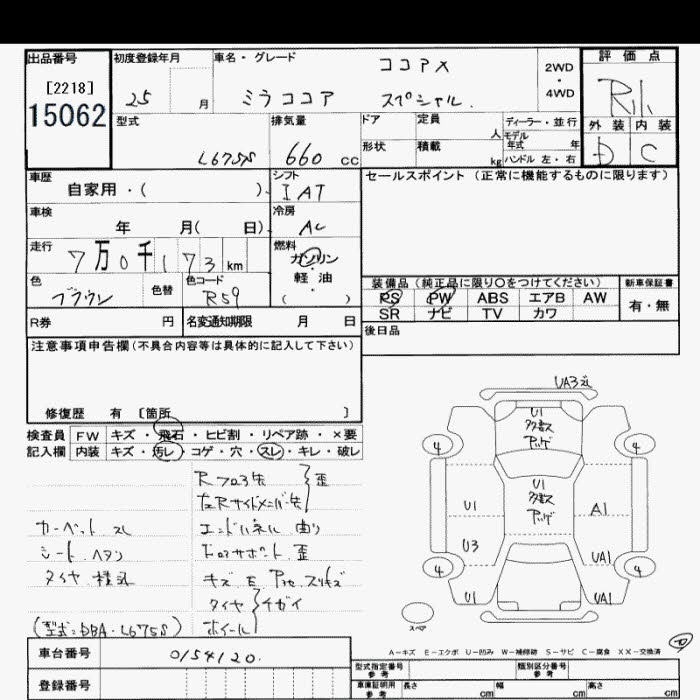 出品番号
[2218]
15062
初度登録年月
25 月
車名・グレード
ココアX
ミラココア スペシャル
2WD
・
4WD
評価点
外装 内装
D C
型式
L675S
排気量
660 cc
ドア
定員 人
形状
積載 kg
ディーラー・並行
モデル
年式 年
ハンドル 左・右
車歴
自家用・( )
シフト
IAT
セールスポイント (正常に機能するものに限ります)
車検
年 月( 日)
冷房
AC
走行
7万0千173 km
燃料
ガソリン
・
軽油
( )
色
ブラウン
色替
色コード
R59
装備品 (純正品に限り〇をつけてください)
PS PW ABS エアB AW
SR ナビ TV カワ
新車保証書
有・無
R券 円
名変通知期限 月 日
後日品
注意事項申告欄 (不具合内容等は具体的に記入して下さい)
修復歴 有 [箇所 ]
検査員
記入欄
FW キズ・飛石・ヒビ割・リペア跡・×要
内装 キズ・汚レ・コゲ・穴・スレ・キレ・破レ
歪
カーペット スレ
エンドパネル 曲り
シート ヘタリ
歪
タイヤ
キズ E
タイヤ
ホイール
チガイ
(型式:DBA-L675S)
U1
多数
U1
多数
U1
U3
U1
A1
UA1
UA1
4
4
4
4
スペア
A-キズ E-エクボ U-凹み W-補修跡 S-サビ C-腐食 XX-交換済
車台番号
0154120.
登録番号
型式指定番号
参考
類別区分番号
参考
車庫証明用
参考
長さ cm
幅 cm
高さ cm